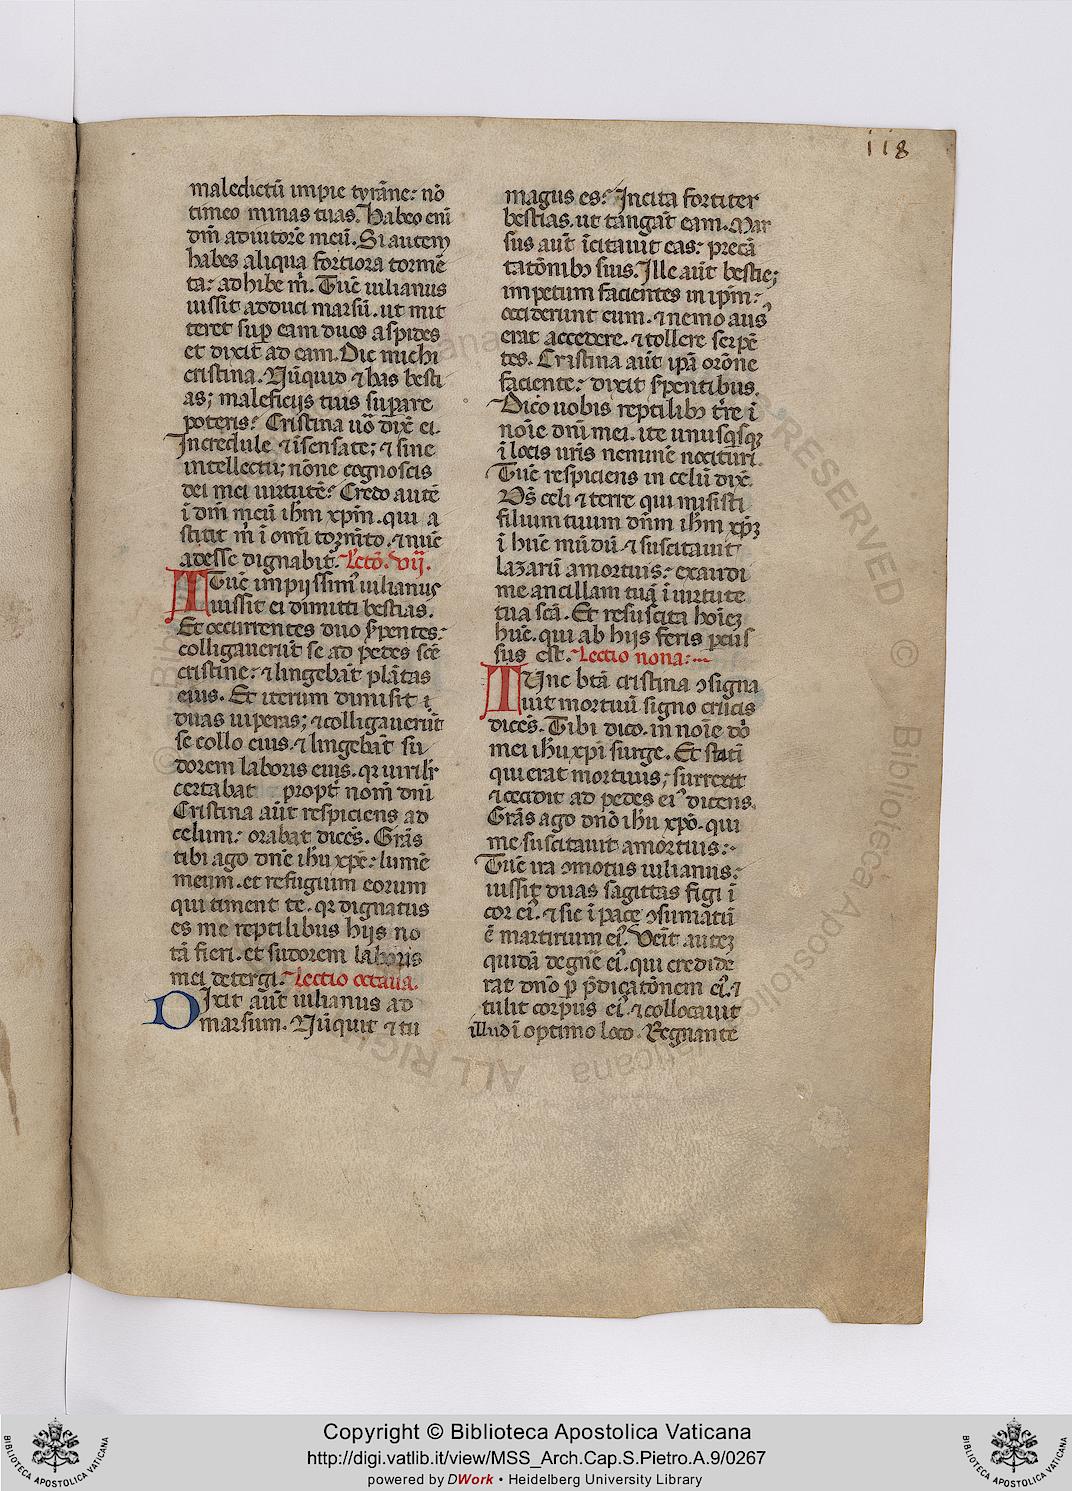 118
maledictū impie tyrāne: nō
timeo minas tuas. Habeo eni
dm̄ adiutorē meū. Si autem
habes aliqua fortiora tormē
ta: adhibe m̄. Tūc iulianus
iussit adduci marsū. ut mit
teret sup eam duos aspides
et dixit ad eam. Dic michi
cristina. Nūquid ⁊ has besti
as; maleficijs tuis supare
poteris? Cristina uō dix̄ ei.
Incredule ⁊ īsensate; ⁊ sine
intellectu; nōne cognoscis
dei mei uirtutē? Credo autē
ī dm̄ meū ihm̄ xpm̄. qui a
stitit m̄ ī omī tormēto. ⁊ nūc
adesse dignabit̄. Lectō. vij.
Tūc impijssim᾽ iulianus
iussit ei dimitti bestias.
Et occurrentes duo spentes:
colligauerūt se ad pedes scē
cristine: ⁊ lingebāt plātas
eius. Et iterum dimisit ī
duas uiperas; ⁊ colligauerūt
se collo eius. ⁊ lingebāt su
dorem laboris eius. qr uirilr̄
certabat propt̄ nom̄ dnī
Cristina aūt respiciens ad
celum: orabat dicēs. Grās
tibi ago dnē ihu xpē: lumē
meum. et refugium eorum
qui timent te. qr dignatus
es me reptilibus hijs no
tā fieri. et sudorem laboris
mei detergi. Lectio octaua.
Dixit aūt iulianus ad
marsum. Nūquit ⁊ tu
magus es? Incita fortiter
bestias. ut tāngāt eam. Mar
sus aūt īcitauit eas: precā
tatōnibꝫ suis. Ille aūt bestie;
impetum facientes in ipm̄:
occiderunt eum. ⁊ nemo aus᾽
erat accedere. ⁊ tollere serpē
tes. Cristina aūt ipā orōne
faciente: dixit spentibus.
Dico uobis reptilibꝫ tr̄e ī
noīe dnī mei. ite unusqsqꝫ
ī locis uris nemine nocituri.
Tūc respiciens in celū dix̄.
Ds̄ celi ⁊ terre qui misisti
filium tuum dnm ihm xpꝫ
ī hūc mūdū ⁊ suscitauit
lazarū amortuis: exaudi
me ancillam tuā ī uirtute
tua scā. Et resuscita hoīeꝫ
hūc. qui ab hijs feris pcus
sus est. Lectio nona:
Tunc btā cristina ɔsigna
uit mortuū signo crucis
dicēs. Tibi dico. in noīe dī
mei ihu xpi surge. Et statī
qui erat mortuus; surrexit
⁊ cecidit ad pedes ei᾽ dicens.
Grās ago dnō ihu xpō. qui
me suscitauit amortuis:
Tūc ira ɔmotus iulianus:
iussit duas sagittas figi ī
cor ei᾽. ⁊ sic ī pace ɔsumatū
ē martirium ei᾽. Venīt auteꝫ
quidā de gnē ei᾽. qui credide
rat dnō p pdicatōnem ei᾽. ⁊
tulit corpus ei᾽. ⁊ collocauit
illud ī optimo loco. Regnante
Copyright © Biblioteca Apostolica Vaticana
http://digi.vatlib.it/view/MSS_Arch.Cap.S.Pietro.A.9/0267
powered by DWork • Heidelberg University Library